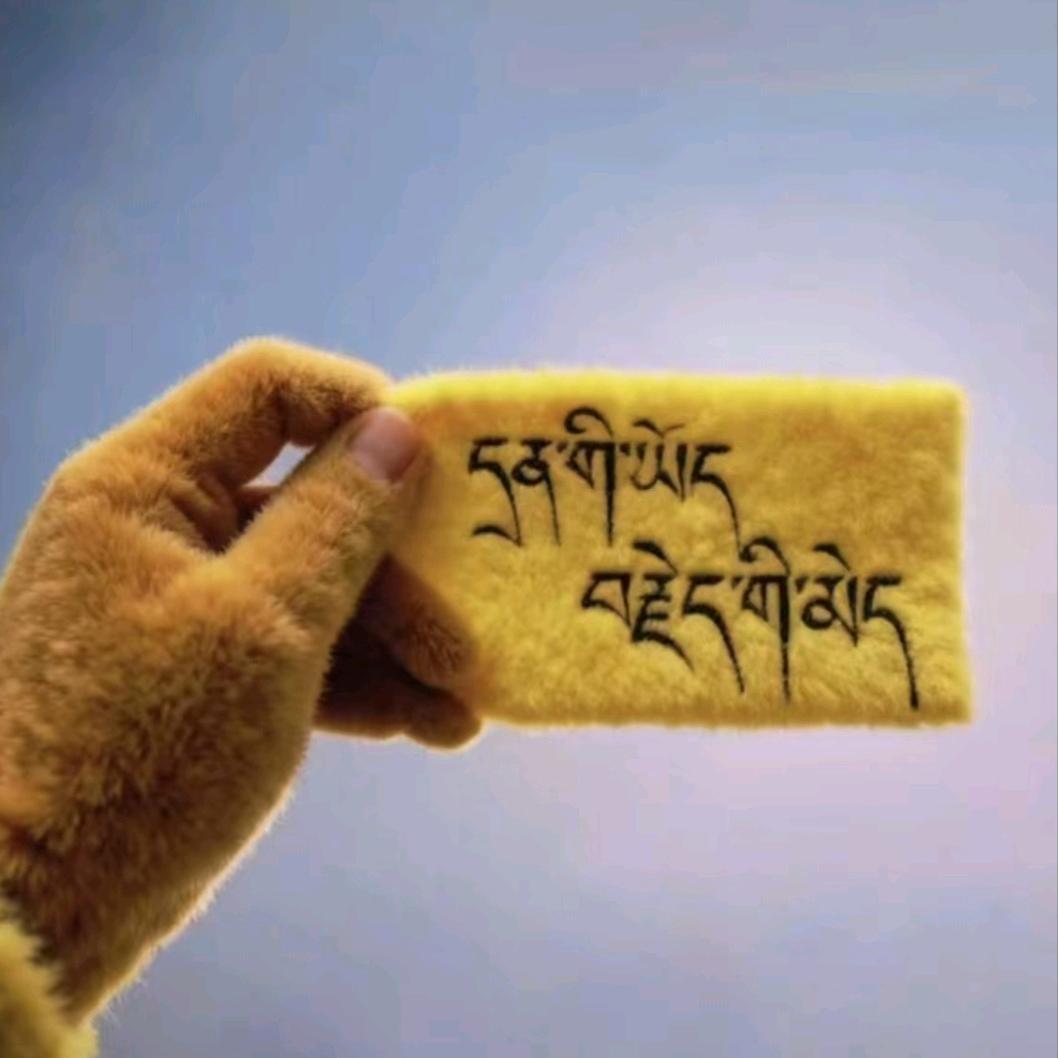 དྲན་གི་ཡོད
བརྗེད་གི་མེད